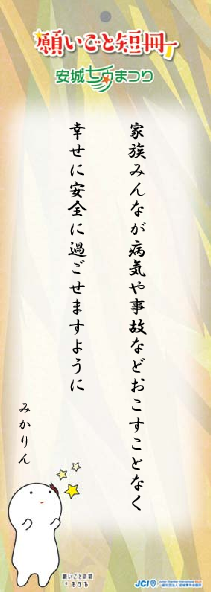 願いごと短冊
安城七夕まつり
家族みんなが病気や事故などおこすことなく
幸せに安全に過ごせますように
みかりん
願いごと
JCI